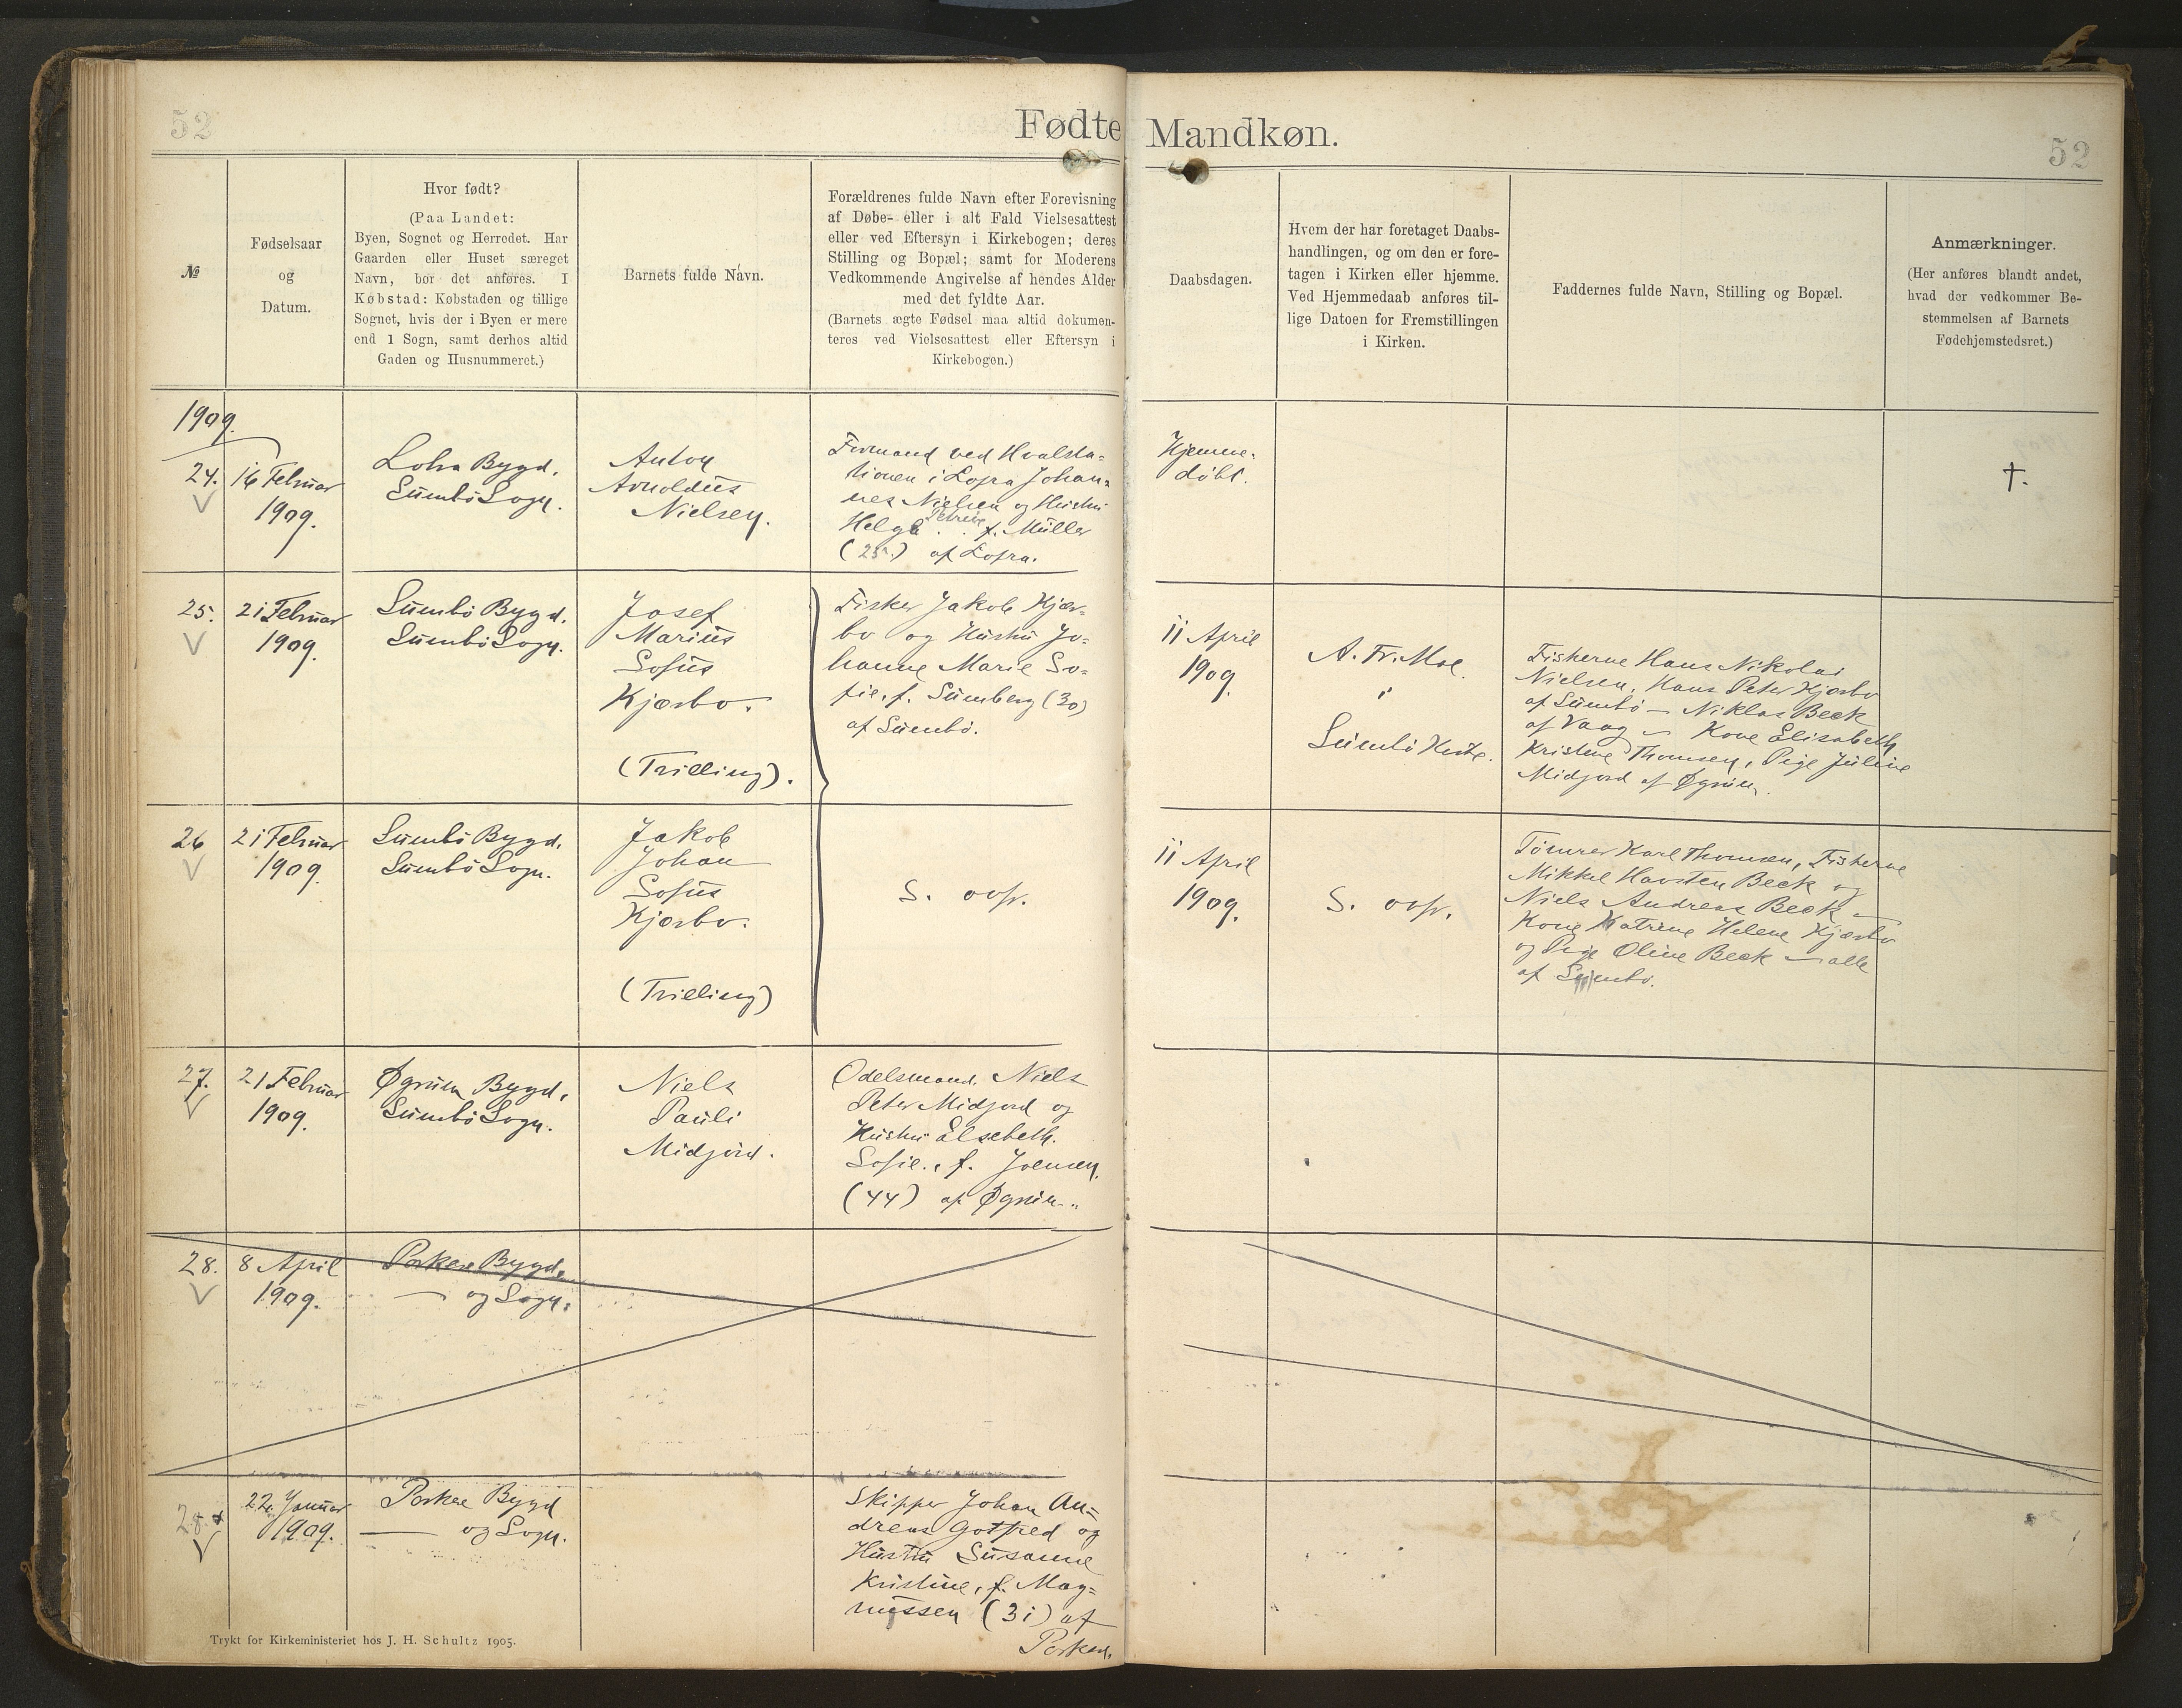 52
Fødte Mandkøn.
52
№
Fødselsaar
og
Datum.
Hvor født?
(Paa Landet:
Byen, Sognet og Herredet. Har
Gaarden eller Huset særeget
Navn, bør det anføres. I
Købstad: Købstaden og tillige
Sognet, hvis der i Byen er mere
end 1 Sogn, samt derhos altid
Gaden og Husnummeret.)
Barnets fulde Navn.
Forældrenes fulde Navn efter Forevisning
af Døbe- eller i alt Fald Vielsesattest
eller ved Eftersyn i Kirkebogen; deres
Stilling og Bopæl; samt for Moderens
Vedkommende Angivelse af hendes Alder
med det fyldte Aar.
(Barnets ægte Fødsel maa altid dokumen-
teres ved Vielsesattest eller Eftersyn i
Kirkebogen.)
Daabsdagen.
Hvem der har foretaget Daabs-
handlingen, og om den er fore-
tagen i Kirken eller hjemme.
Ved Hjemmedaab anføres til-
lige Datoen for Fremstillingen
i Kirken.
Faddernes fulde Navn, Stilling og Bopæl.
Anmærkninger.
(Her anføres blandt andet,
hvad der vedkommer Be-
stemmelsen af Barnets
Fødehjemstedsret.)
1909.
24.
16 Februar
1909.
Lobra Bygd,
Sumbö Sogn.
Anton
Arnoldus
Nielsen.
Formand ved Hvalsta-
tionen i Lopra Johan-
nes Nielsen og Hustru
Helga Petrine f. Müller
(25.) af Lopra.
Hjemme-
döbt.
†.
25.
21 Februar
1909.
Sumbö Bygd,
Sumbö Sogn.
Josef
Marius
Sofus
Kjærbo.
(Trilling).
Fisker Jakob Kjær-
bo og Hustru Jo-
hanne Marie So-
fie, f. Sumberg (30)
af Sumbö.
11 April
1909.
A. Fr. Moe.
i
Sumbö Kirke.
Fiskerne Hans Nikolai
Nielsen, Hans Peter Kjærbo
af Sumbö — Niklas Beck
af Vaag — Kone Elisabeth
Kristine Thomsen, Pige Juline
Midjord af Øgrum.
26
21 Februar
1909.
Sumbö Bygd,
Sumbö Sogn.
Jakob
Johan
Sofus
Kjærbo.
(Trilling)
S. ovfr.
11 April
1909.
S. ovfr.
Tömrer Karl Thomsen, Fiskerne
Mikkel Havsten Beck og
Niels Andreas Beck —
Kone Katrine Helene Kjærbo
og Pige Oline Beck — alle
af Sumbö.
27.
21 Februar
1909.
Øgrum Bygd,
Sumbö Sogn.
Niels
Pauli
Midjord.
Odelsmand Niels
Peter Midjord og
Hustru Elsebeth
Sofie, f. Joensen
(44) af Øgrum.
28.
8 April
1909.
Porkere Bygd,
— og Sogn.
28.
22 Januar
1909.
Porkere Bygd
— og Sogn.
Skipper Johan An-
dreas Gotfred og
Hustru Susanne
Kristine, f. Mag-
nussen (31) af
Porkere.
Trykt for Kirkeministeriet hos J. H. Schultz 1905.